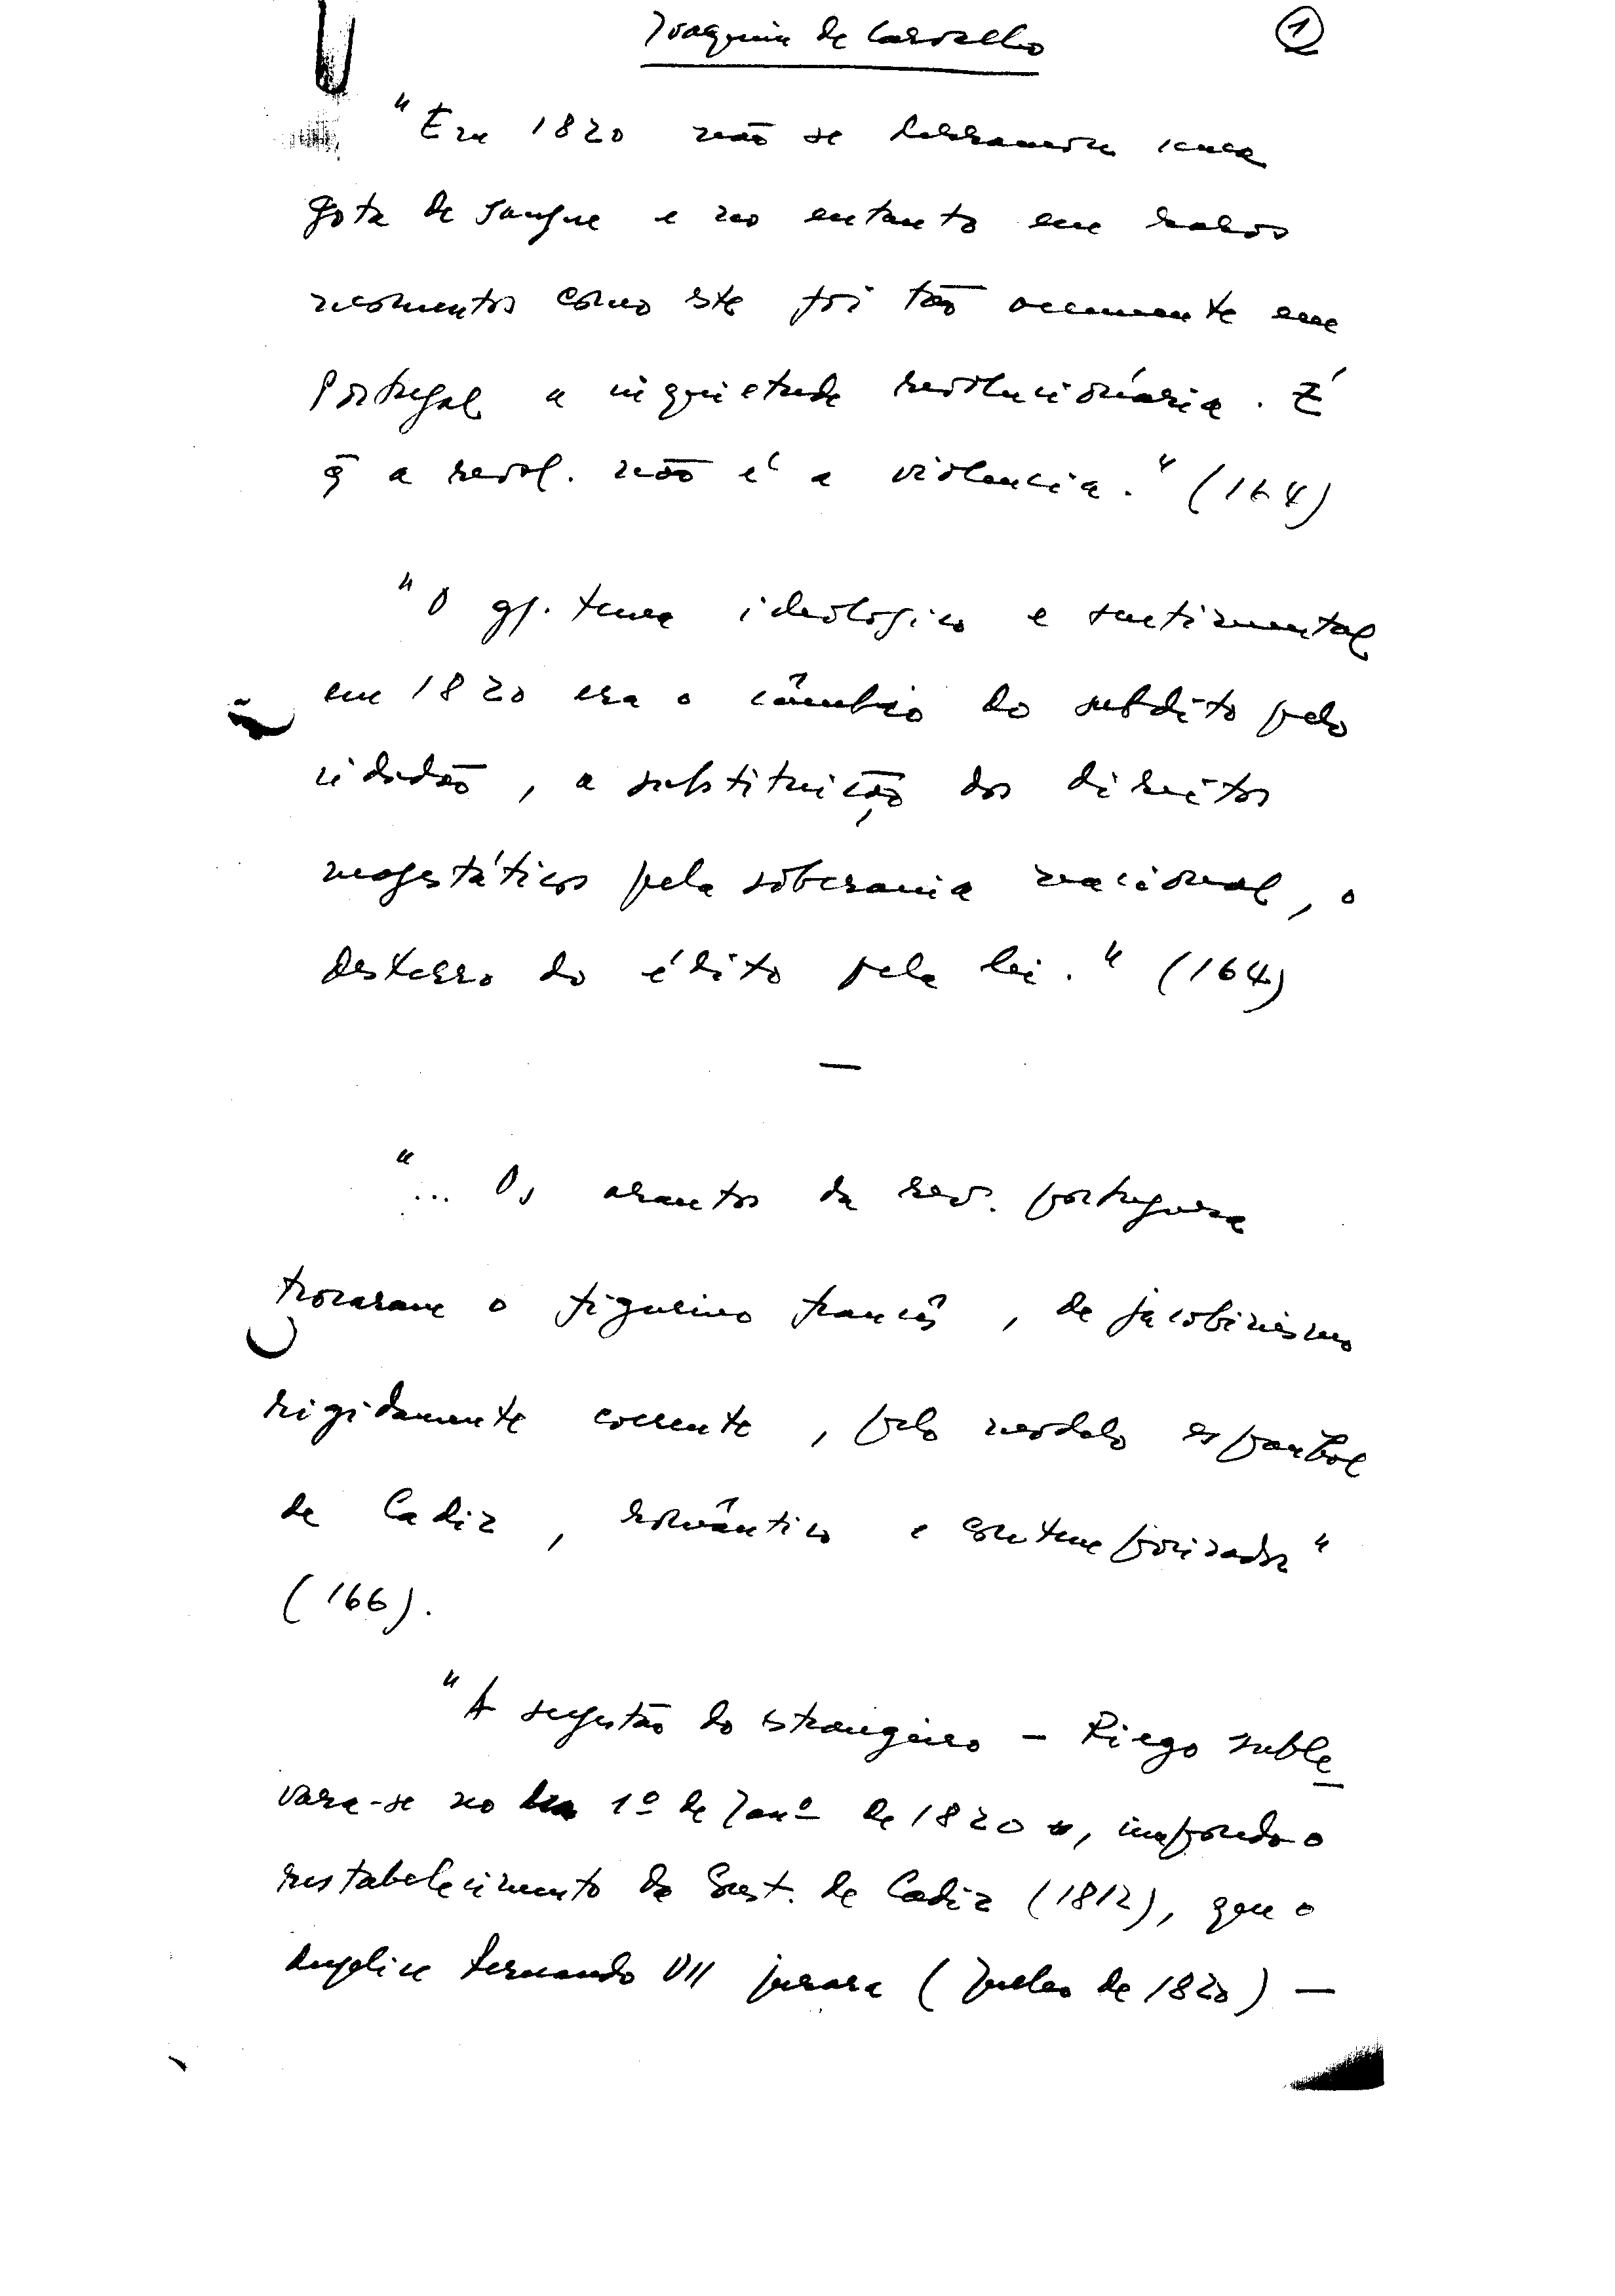 Joaquim de Carvalho
1
"Em 1820 não se derramou uma
gota de sangue e no entanto em raros
momentos como este foi tão veemente em
Portugal a inquietude revolucionária. É
q̄ a revol. não é a violencia." (164)
"O gr. tema ideologico e sentimental
em 1820 era o câmbio do subdito pelo
cidadão, a substituição dos direitos
magestáticos pela soberania nacional, o
desterro do édito pela lei." (164)
—
"... Os arautos da rev. portuguesa
trocaram o figurino francês, de jacobinismo
rigidamente coerente, pelo modelo espanhol
de Cadiz, romântico e contemporizador"
(166).
"A sugestão do estrangeiro – Riego suble
vara-se no 1º de Janº de 1820, impondo o
restabelecimento da Const. de Cadiz (1812), que o
Fernando VII jurara (Julho de 1820) —